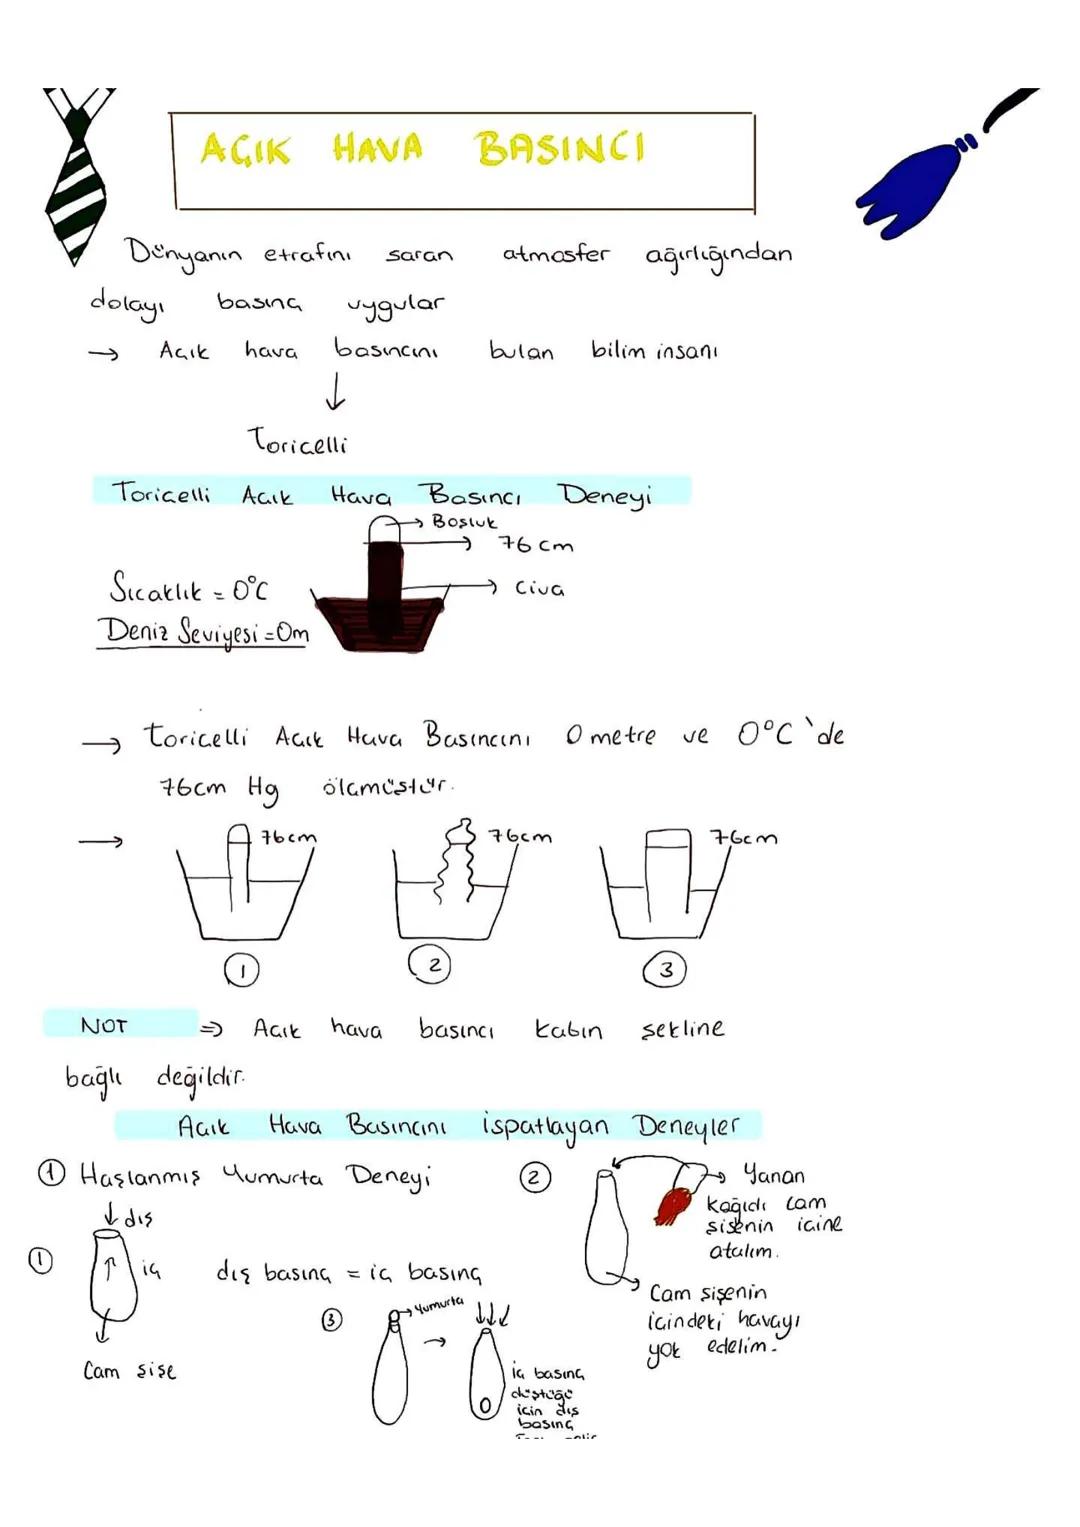 AÇIK HAVA BASINCI
Dünyanın etrafını saran atmosfer ağırlığından
dolayı basınç uygular
→ Açık hava basıncını bulan bilim insanı
↓
Toricelli
Toricelli Açık Hava Basıncı Deneyi
→ Boşluk
→ 76 cm
→ Civa
Sıcaklık = 0°C
Deniz Seviyesi = 0m
→ Toricelli Açık Hava Basıncını 0 metre ve 0°C'de
76cm Hg ölçmüştür.
→ 76cm 76cm 76cm
1 2 3
NOT ⇒ Açık hava basıncı kabın şekline
bağlı değildir.
Açık Hava Basıncını ispatlayan Deneyler
① Haşlanmış Yumurta Deneyi
↓ dış
① iç dış basınç = iç basınç
Cam şişe
② → Yanan
kağıdı cam
şişenin içine
atalım.
Cam şişenin
içindeki havayı
yok edelim.
③ → Yumurta
→
iç basınç
düştüğü
için dış
basınç